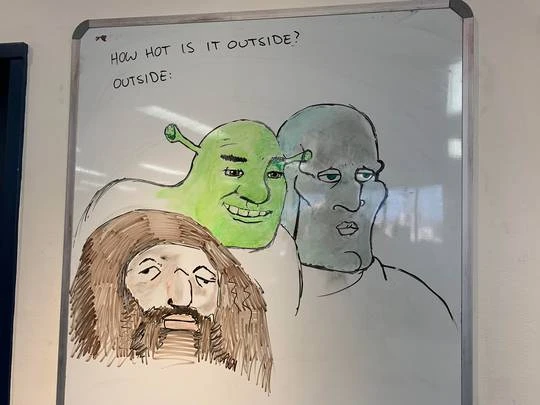 HOW HOT IS IT OUTSIDE?
OUTSIDE: